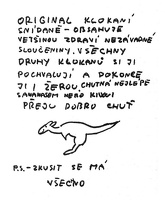 ORIGINAL KLOKANÍ
SNÍDANĚ - OBSAHUJE
VĚTŠINOU ZDRAVÍ NEZÁVADNÉ
SLOUČENINY. VŠECHNY
DRUHY KLOKANŮ SI JI
POCHVALUJÍ A DOKONCE
JI I ŽEROU, CHUTNÁ NEJLÉPE
S ANANASEM NEBO KIWI
PŘEJU DOBRO CHUŤ
P.S. - ZKUSIT SE MÁ
VŠECNO